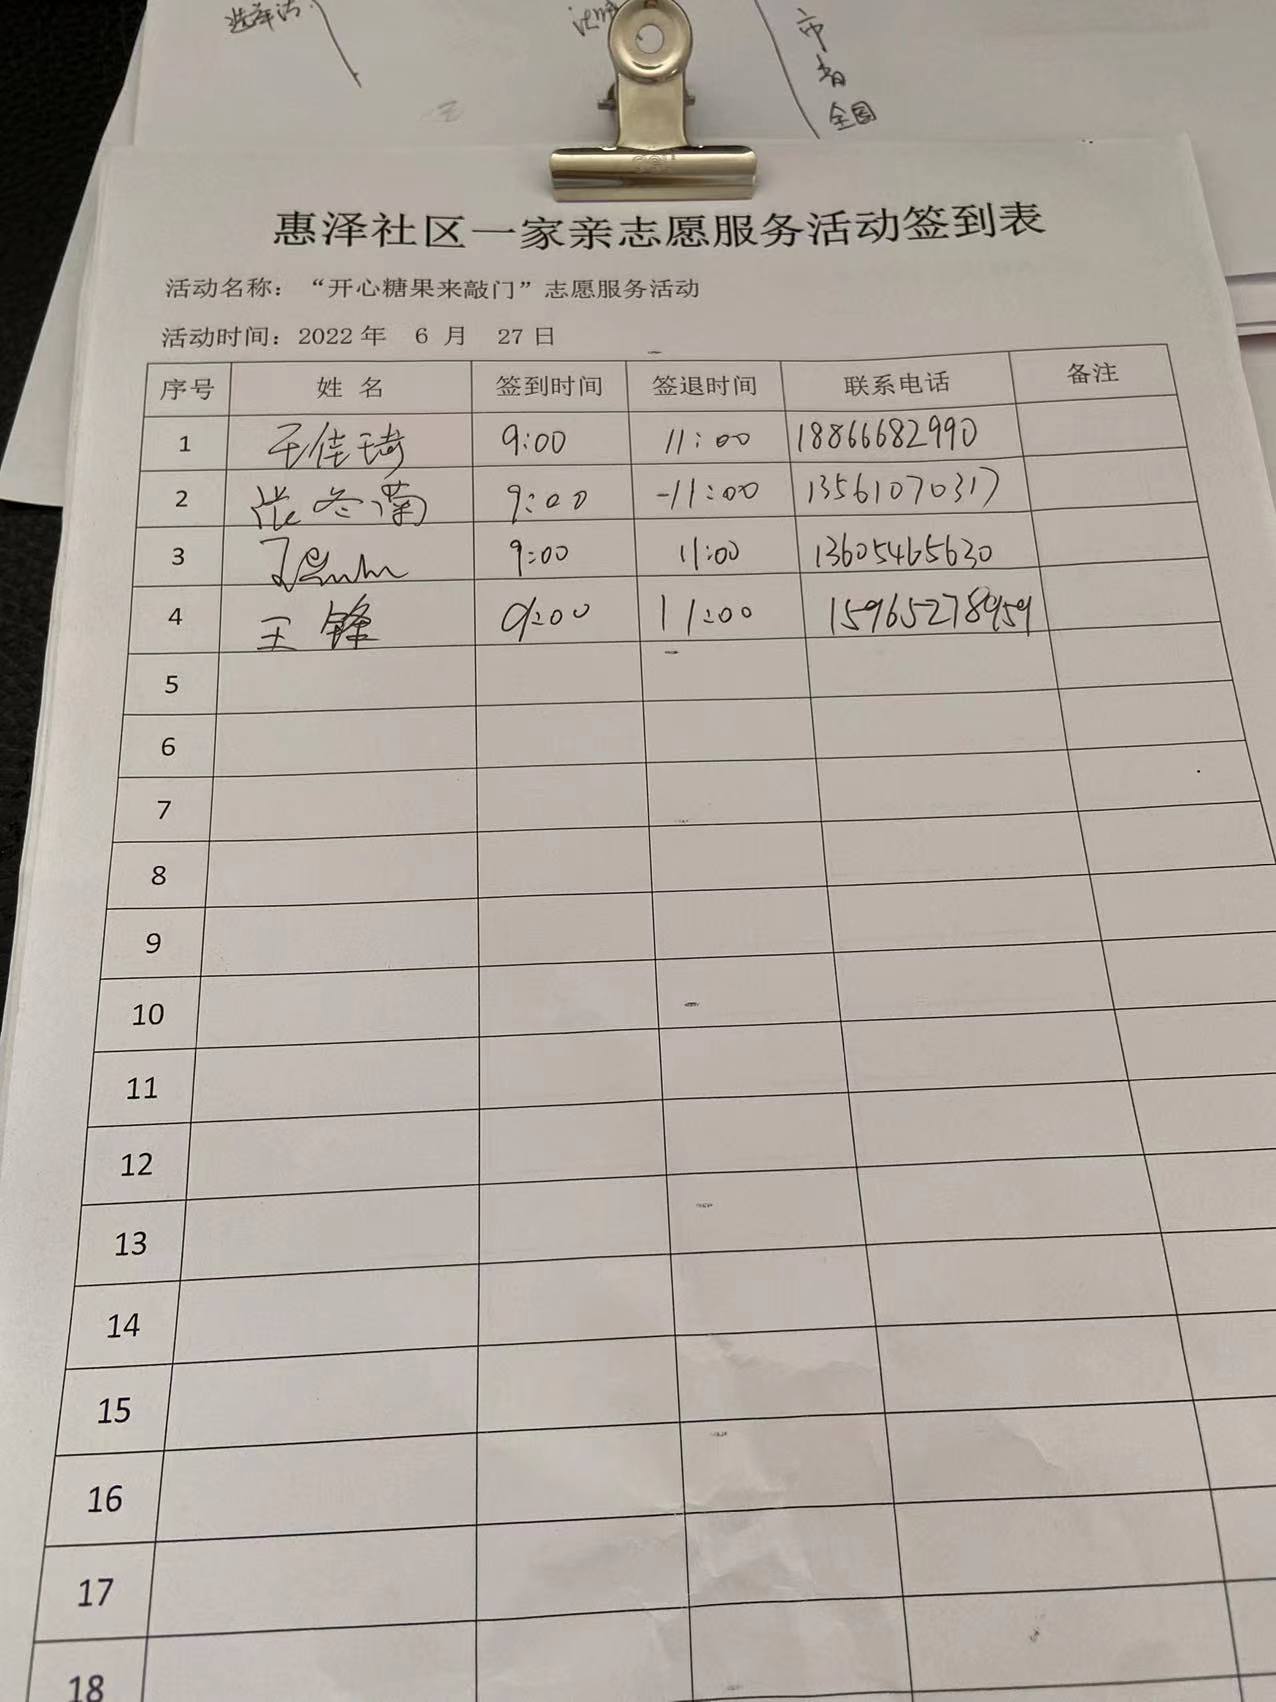 市
省
全国
惠泽社区一家亲志愿服务活动签到表
活动名称：“开心糖果来敲门”志愿服务活动
活动时间：2022 年 6 月 27 日
序号 姓 名 签到时间 签退时间 联系电话 备注
1 王佳琦 9:00 11:00 18866682990
2 张冬菊 9:00 -11:00 13561070317
3 9:00 11:00 13605465630
4 王锋 9:00 11:00 15965278959
5
6
7
8
9
10
11
12
13
14
15
16
17
18